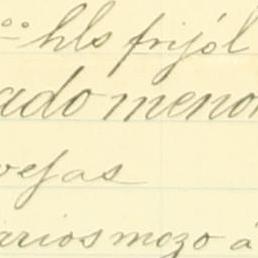 hls frijól
ado menor
vejas
arios mozo á